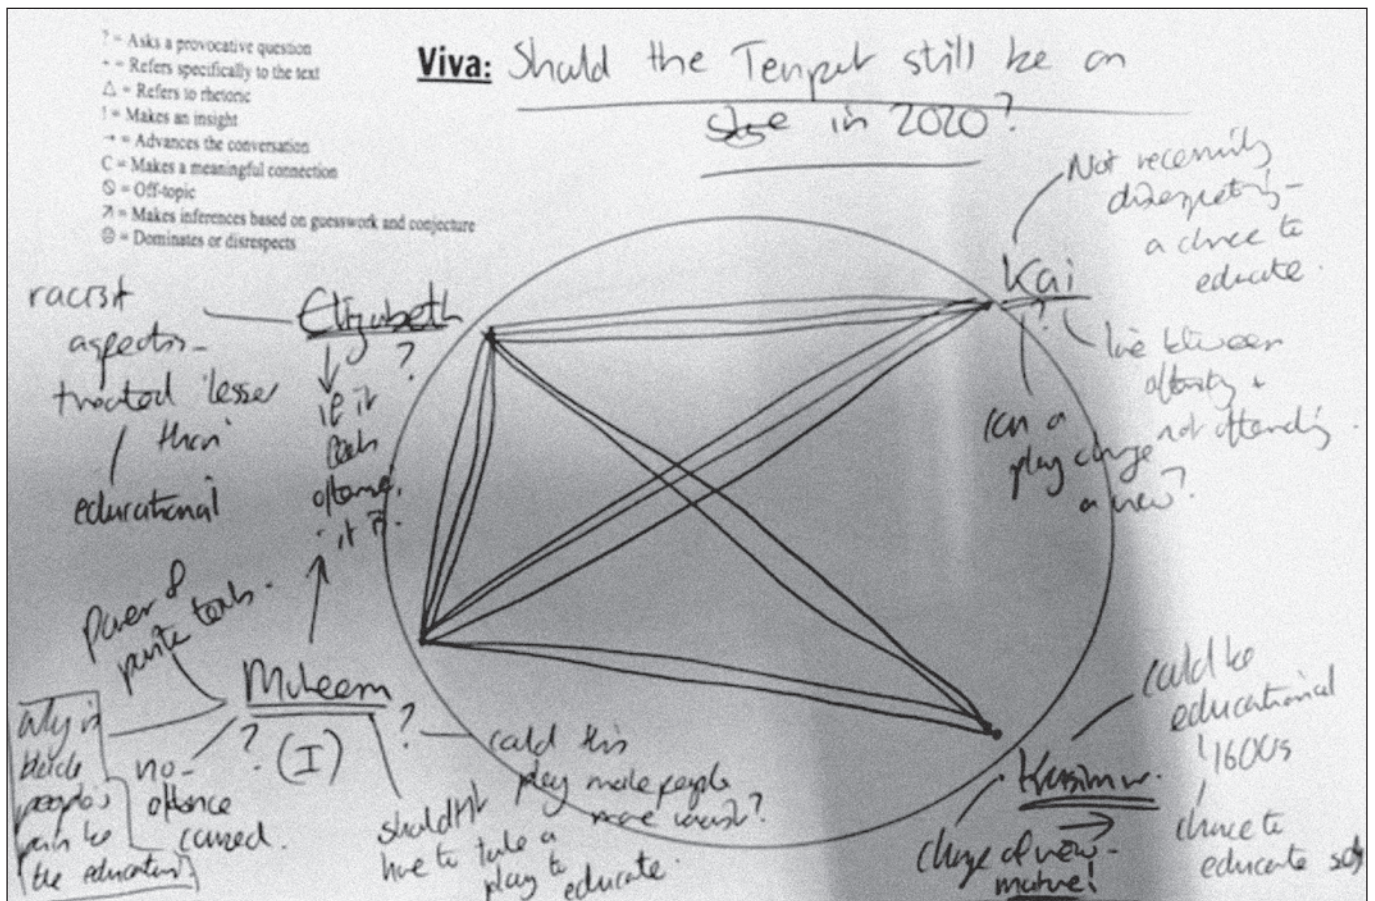 ? = Asks a provocative question
= Refers specifically to the text
△ = Refers to rhetoric
! = Makes an insight
→ = Advances the conversation
C = Makes a meaningful connection
= Off-topic
↗ = Makes inferences based on guesswork and conjecture
☹ = Dominates or disrespects
Viva: Should the Tempest still be on
stage in 2020?
Not necessarily
disrespecting -
a chance to
educate.
Kai
?
line between
offending +
not offending.
can a
play change
a view?
Elizabeth
?
racist
aspects -
treated 'lesser
than'
educational
if it
offence,
it is.
Power of
white texts.
Muleem
? (I) ?
why is
black
people's
pain be
the education
no
offence
caused.
shouldn't
have to take a
play to
educate.
could this
play make people
more racist?
could be
educational
1600s
chance to
educate
change of view -
mature!